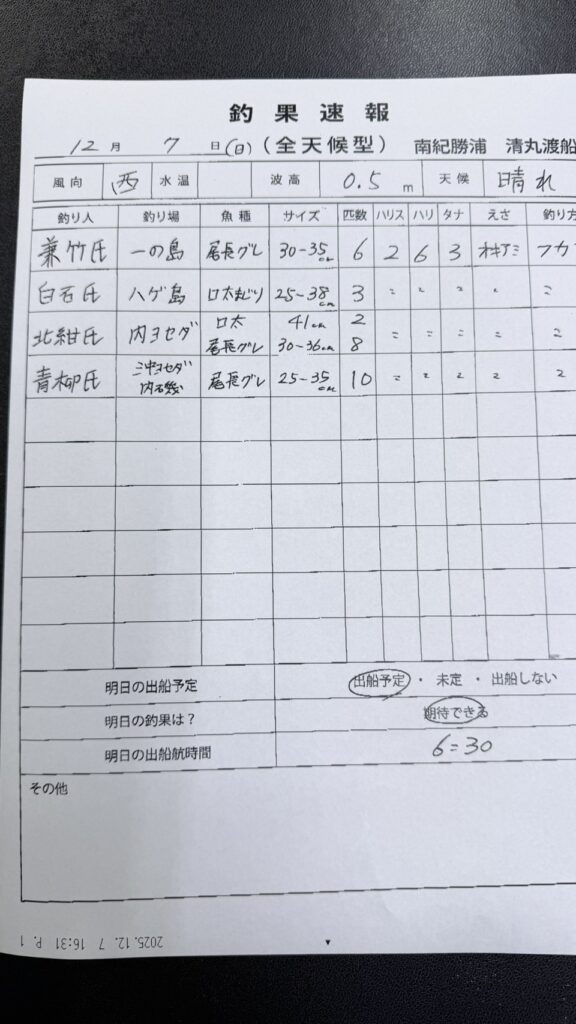 釣果速報
12月 7日(日)(全天候型) 南紀勝浦 清丸渡船
風向 西 水温 波高 0.5m 天候 晴れ
釣り人 釣り場 魚種 サイズ 匹数 ハリス ハリ タナ えさ 釣り方
兼竹氏 一の島 尾長グレ 30-35cm 6 2 6 3 オキアミ フカ
白石氏 ハゲ島 口太まじり 25-38cm 3 〃 〃 〃 〃 〃
北紺氏 内ヨセダ 口太 41cm 2
尾長グレ 30-36cm 8 〃 〃 〃 〃 〃
青柳氏 沖ヨセダ 尾長グレ 25-35cm 10 〃 〃 〃 〃 〃
明日の出船予定 出船予定・未定・出船しない
明日の釣果は? 期待できる
明日の出船航時間 6:30
その他
2025.12. 7 16:31 P. 1